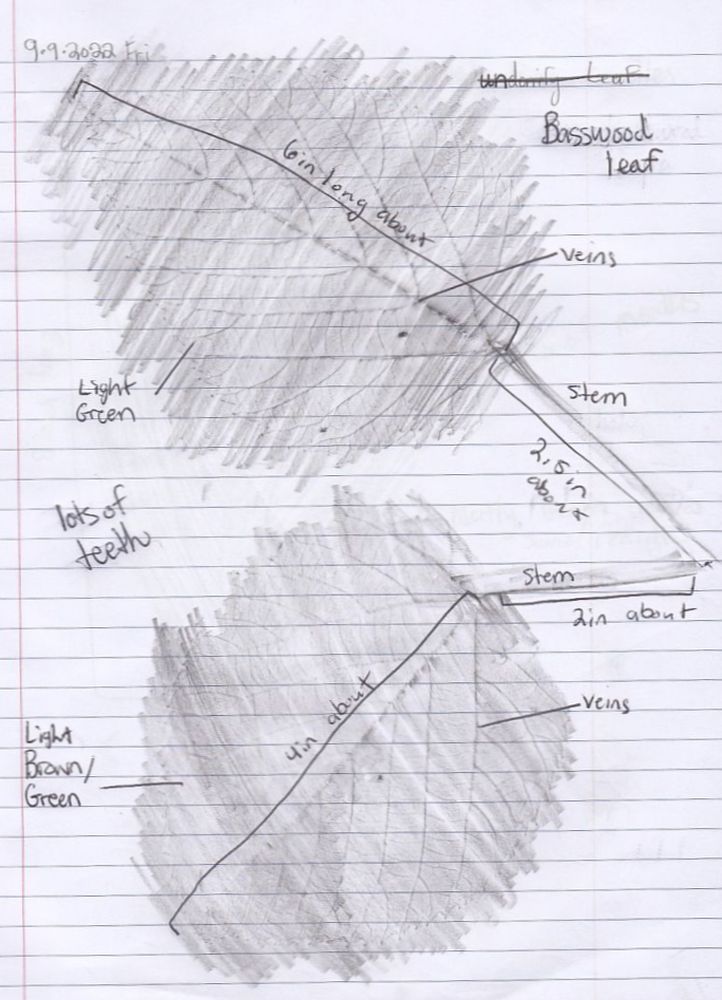 9.9.2022 Fri
Basswood
leaf
6in long about
veins
Light
Green
Stem
2.5in
about
lots of
teeth
Stem
2in about
4in about
veins
Light
Brown/
Green